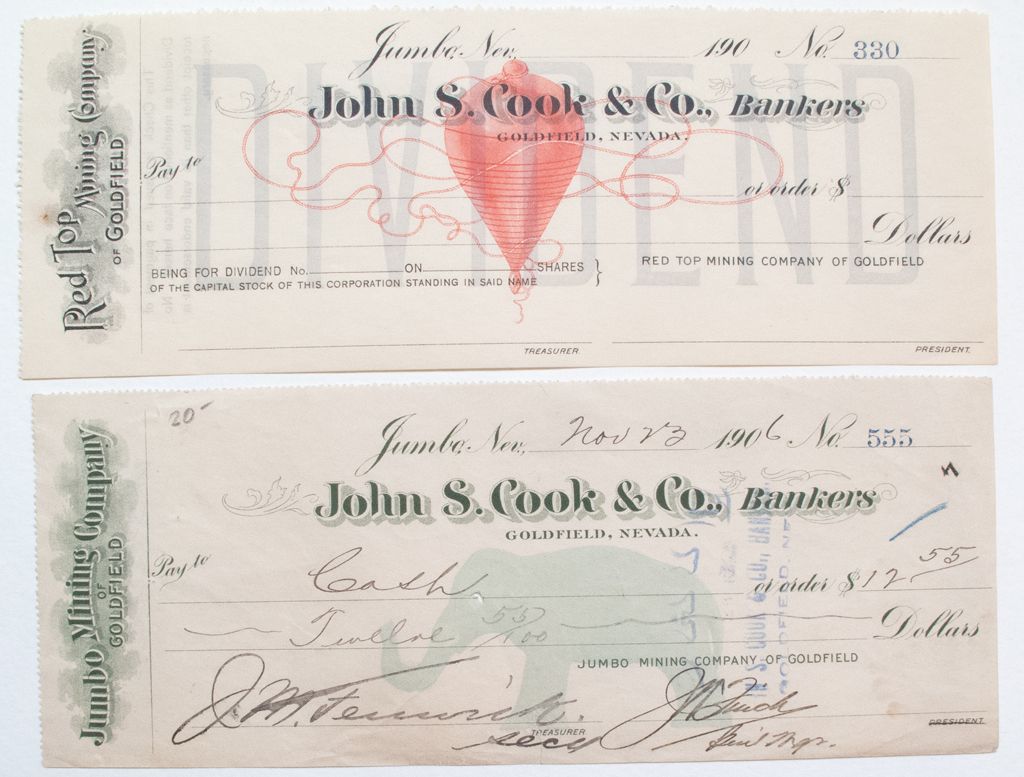 Red Top
Mining Company.
OF GOLDFIELD
Jumbo, Nev., 190 No. 330
DIVIDEND
John S. Cook & Co., Bankers
GOLDFIELD, NEVADA.
Pay to
or order $
Dollars
BEING FOR DIVIDEND No. ON SHARES }
OF THE CAPITAL STOCK OF THIS CORPORATION STANDING IN SAID NAME
RED TOP MINING COMPANY OF GOLDFIELD
TREASURER.
PRESIDENT.
Jumbo Mining Company
OF
GOLDFIELD
20
Jumbo, Nev., Nov 23 1906 No. 555
John S. Cook & Co., Bankers
GOLDFIELD, NEVADA.
Pay to Cash or order $ 12 55
Twelve 55/100 Dollars
JUMBO MINING COMPANY OF GOLDFIELD
J. M. Fenwick.
TREASURER
secy
PRESIDENT.